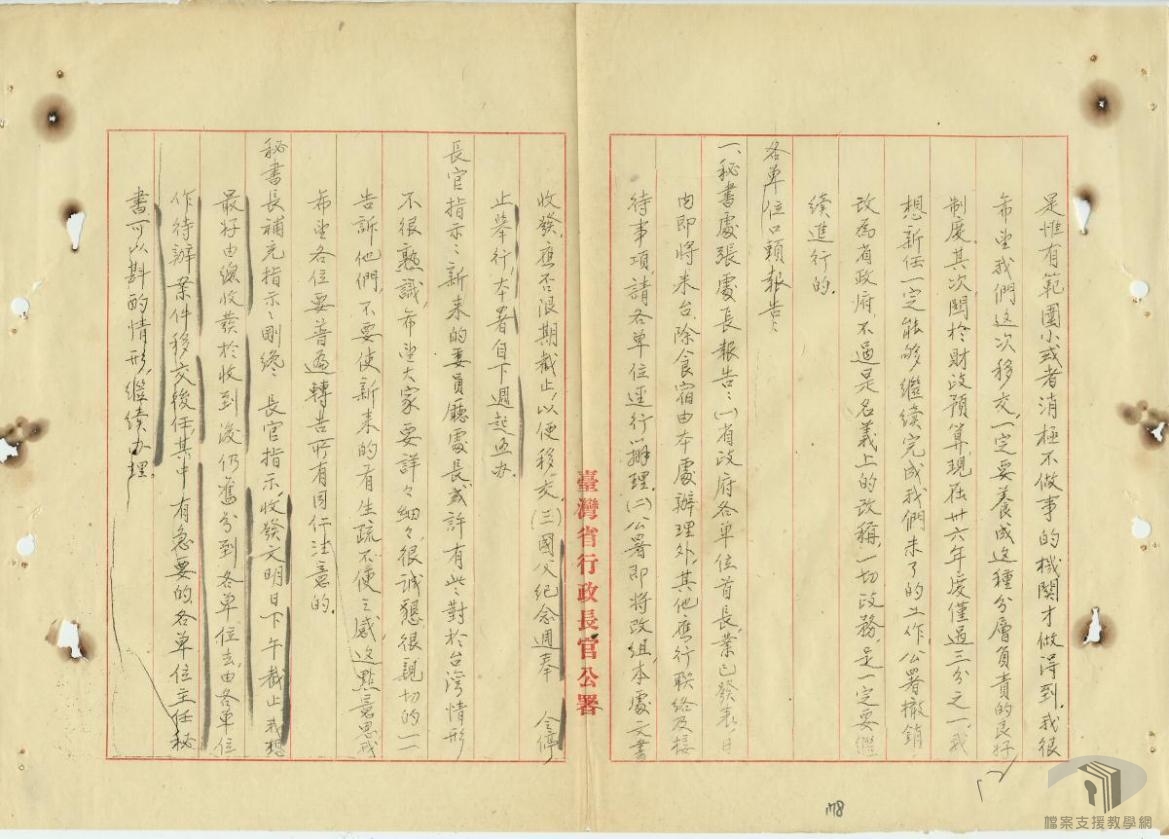 是惟有範圍小或者消極不做事的機関才做得到.我很
希望我們这次移交,一定要養成这種分層負責的良好
制度.其次関於財政預算,現在卅六年度僅過三分之一,我
想新任一定能够继续完成我們未了的工作.公署撤銷
改為省政府,不過是名義上的改稱,一切政務,是一定要繼
续進行的.
各单位口頭報告:
一、秘書處張處長報告:(一)省政府各单位首長業已發表,日
内即將来台,除食宿由本處辦理外,其他應行联絡及接
待事項,請各单位逕行辦理.(二)公署即將改組,本處文書
臺灣省行政長官公署
收發,應否限期截止,以便移交.(三)國父紀念週奉 令停
止舉行,本署自下週起函办.
長官指示:新来的委員廳處長或許有些:對於台湾情形
不很熟識,希望大家要詳々細々,很誠懇很親切的一一
告訴他們,不要使新来的有生疏不便之感,这點意思我
希望各位要普遍轉告所有同仁注意的.
秘書長補充指示:剛纔 長官指示收發文明日下午截止,我想
最好由總收發於收到後仍舊分到各单位去,由各单位
作待辦案件移交後任,其中有急要的,各单位主任秘
書可以斟酌情形,继续办理.
178
檔案支援教學網